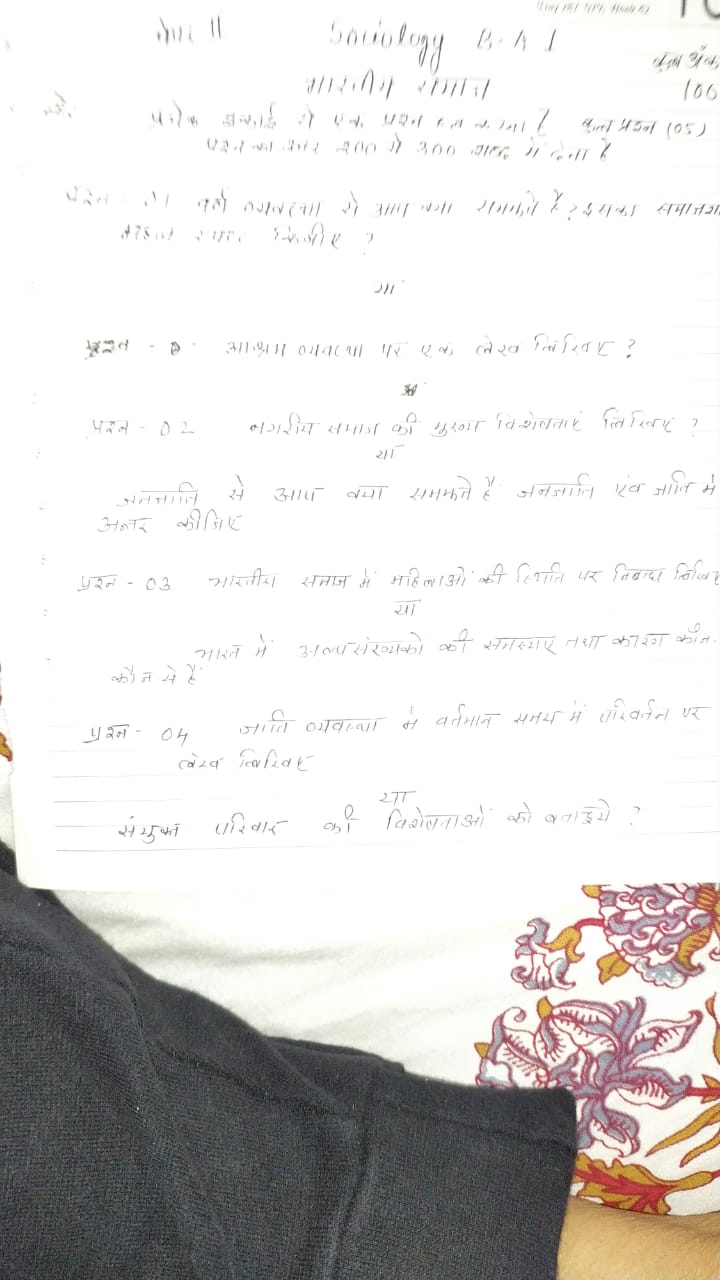 पेपर II Sociology B.A I
कुल अंक
भारतीय समाज 100
प्रत्येक इकाई से एक प्रश्न हल करना है कुल प्रश्न (05)
प्रश्न का उत्तर 200 से 300 शब्द में देना है
प्रश्न वर्ण व्यवस्था से आप क्या समझते हैं? इसका
कीजिए ?
या
प्रश्न - आश्रम व्यवस्था पर एक लेख लिखिए ?
प्रश्न - 02 नगरीय समाज की मुख्य विशेषताएं लिखिए ?
या
जनजाति से आप क्या समझते हैं जनजाति एंव जाति में
अन्तर कीजिए
प्रश्न - 03 भारतीय समाज में महिलाओं की स्थिति पर निबन्ध लिखिए
या
भारत में अल्पसंख्यको की समस्याए तथा कारण कौन-
कौन से हैं
प्रश्न - 04 जाति व्यवस्था में वर्तमान समय में परिवर्तन पर
लेख लिखिए
या
संयुक्त परिवार की विशेषताओं को बताइये ?